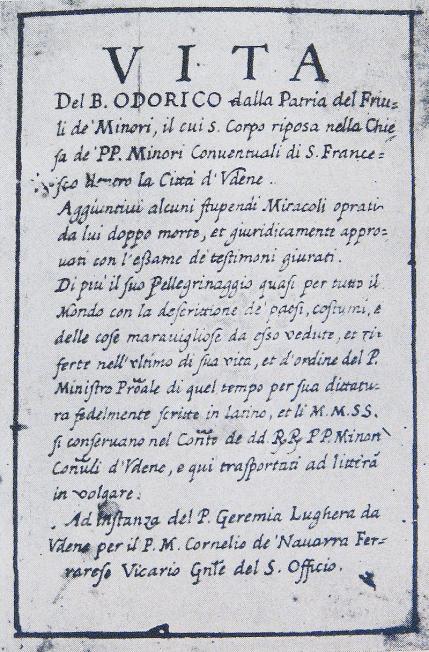 VITA
Del B. ODORICO dalla Patria del Friu=
li de' Minori, il cui S. Corpo riposa nella Chie
sa de' PP. Minori Conuentuali di S. France=
sco la Città d'Vdene.
Aggiuntiui alcuni stupendi Miracoli oprati
da lui doppo morte, et giuridicamente appro=
uati con l'essame de testimoni giurati.
Di più il suo Pellegrinaggio quasi per tutto il
Mondo con la descrittione de' paesi, costumi, e
delle cose marauigliose da esso vedute, et ri=
ferte nell'vltimo di sua vita, et d'ordine del P.
Ministro Proãle di quel tempo per sua dittatu=
ra fedelmente scritte in latino, et li M.M.SS.
si conseruano nel Conṽto de dd. RR. PP. Minori
Conũli d'Vdene, e qui trasportati ad litterã
in volgare:
Ad instanza del P. Geremia Lughera da
Vdene per il P. M. Cornelio de' Nauarra Fer=
rarese Vicario Gñle del S. Officio.